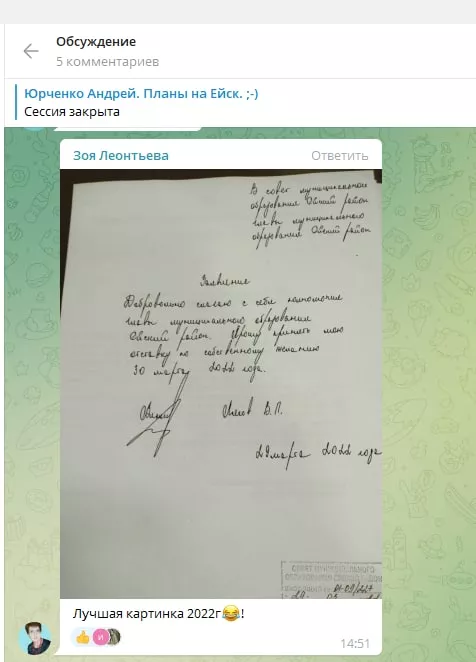 Обсуждение
5 комментариев
Юрченко Андрей. Планы на Ейск. ;-)
Сессия закрыта
Зоя Леонтьева
Ответить
В совет муниципального
образования Ейский район
главы муниципального
образования Ейский район
Заявление
Добровольно слагаю с себя полномочия
главы муниципального образования
Ейский район. Прошу принять мою
отставку по собственному желанию
30 марта 2022 года.
В.П.
29 марта 2022 года
СОВЕТ МУНИЦИПАЛЬНОГО
Лучшая картинка 2022г😂!
14:51